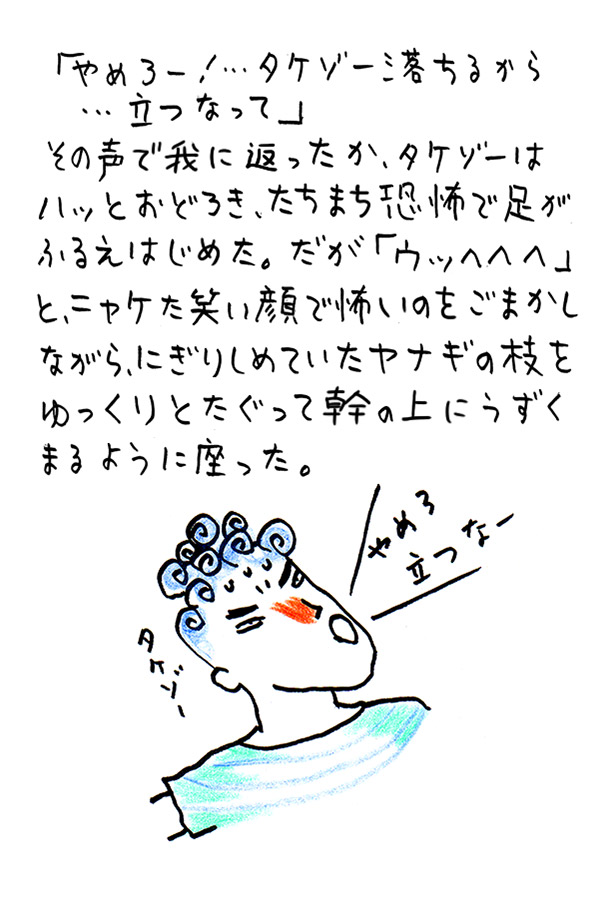 「やめろー!…タケゾー落ちるから
…立つなって」
その声で我に返ったか、タケゾーは
ハッとおどろき、たちまち恐怖で足が
ふるえはじめた。だが「ウッヘヘヘ」
と、ニヤケた笑い顔で怖いのをごまかし
ながら、にぎりしめていたヤナギの枝を
ゆっくりとたぐって幹の上にうずく
まるように座った。
やめろ
立つなー
タケゾー